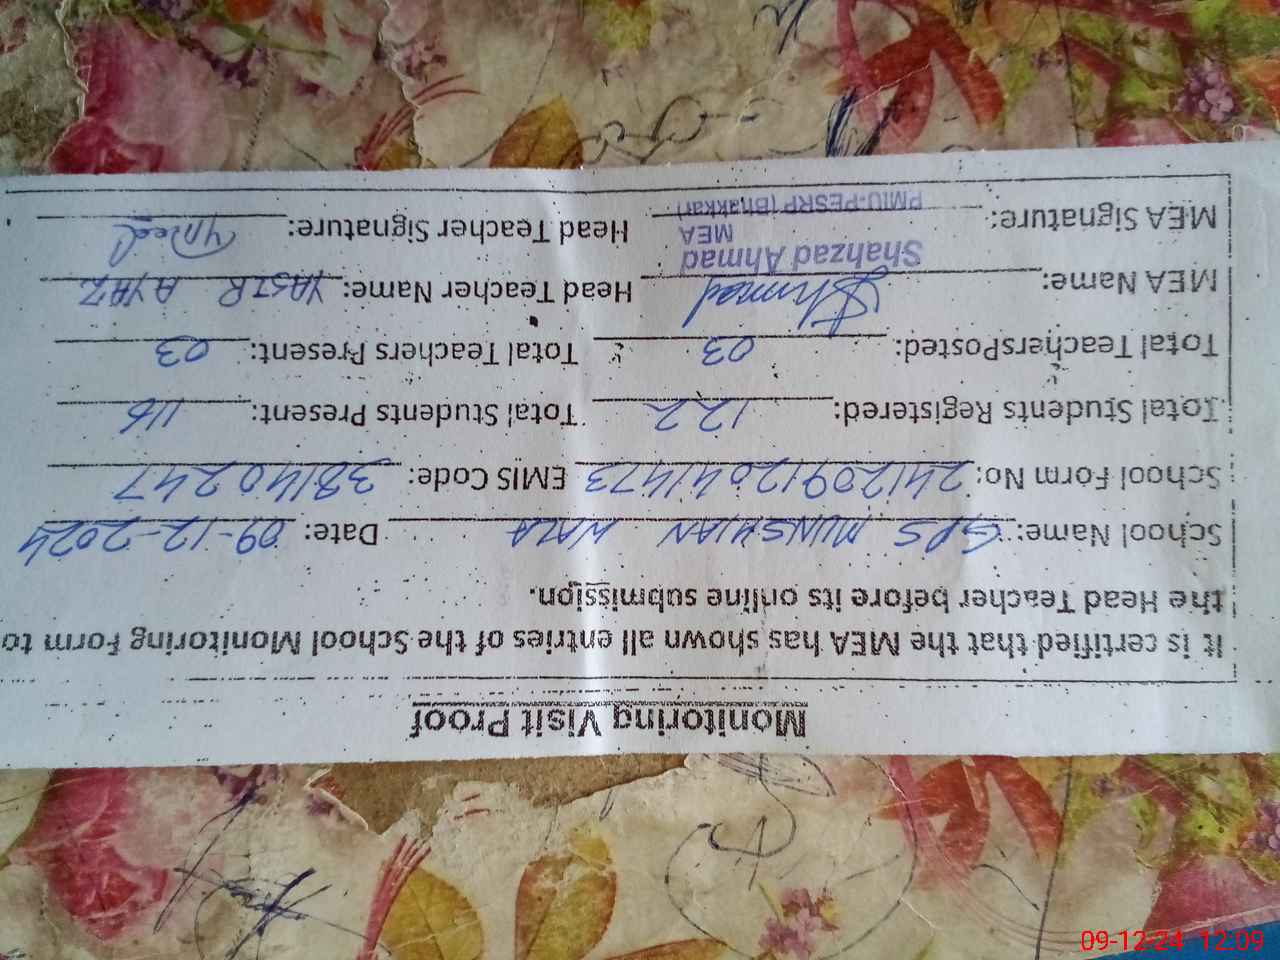 Monitoring Visit Proof
It is certified that the MEA has shown all entries of the School Monitoring Form to
the Head Teacher before its online submission.
School Name: GPS MUNSHIAN WALA Date: 09-12-2024
School Form No: 24120912041473 EMIS Code: 38140247
Total Students Registered: 122 Total Students Present: 116
Total TeachersPosted: 03 Total Teachers Present: 03
MEA Name: Ahmad Head Teacher Name: YASIR AYAZ
Shahzad Ahmad
MEA
PMIU-PESRP (Bhakkar)
MEA Signature: Head Teacher Signature:
09-12-24 12:09